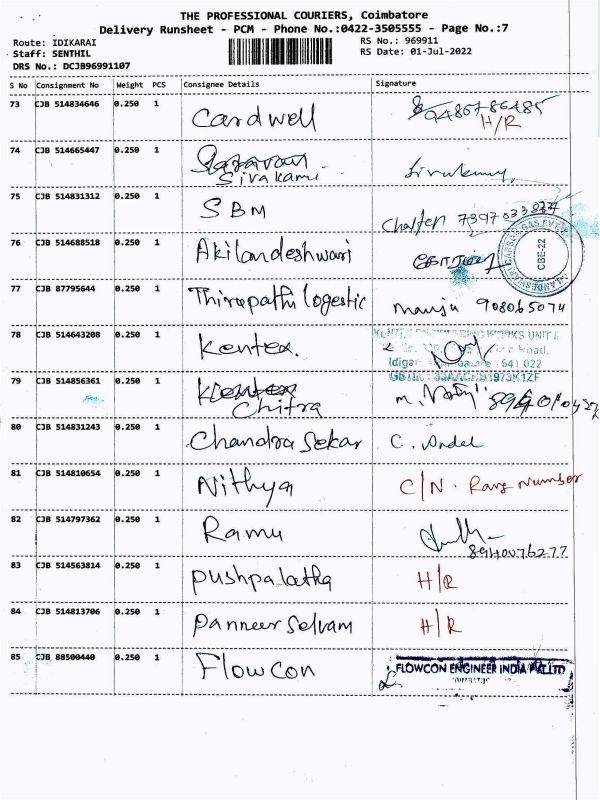 THE PROFESSIONAL COURIERS, Coimbatore
Delivery Runsheet - PCM - Phone No.:0422-3505555 - Page No.:7
Route: IDIKARAI RS No.: 969911
Staff: SENTHIL RS Date: 01-Jul-2022
DRS No.: DCJB96991107
S No Consignment No Weight PCS Consignee Details Signature
73 CJB 514834646 0.250 1 Cardwell 9486786485
H/R
74 CJB 514665447 0.250 1
Sivakami
75 CJB 514831312 0.250 1 SBM
76 CJB 514688518 0.250 1 Akilandeshwari
CBE-22
77 CJB 87795644 0.250 1 Thirupathi Logestic 908065074
78 CJB 514643208 0.250 1 Kentex.
641 022
79 CJB 514856361 0.250 1 Kentex
Chitra
80 CJB 514831243 0.250 1 Chandra Sekar
81 CJB 514810654 0.250 1 Nithya C/N. Rang Number
82 CJB 514797362 0.250 1 Ramu
83 CJB 514563814 0.250 1 Pushpalatha H/R
84 CJB 514813706 0.250 1 Panneer Selvam H/R
85 CJB 88500440 0.250 1 Flowcon FLOWCON ENGINEER INDIA PVT LTD